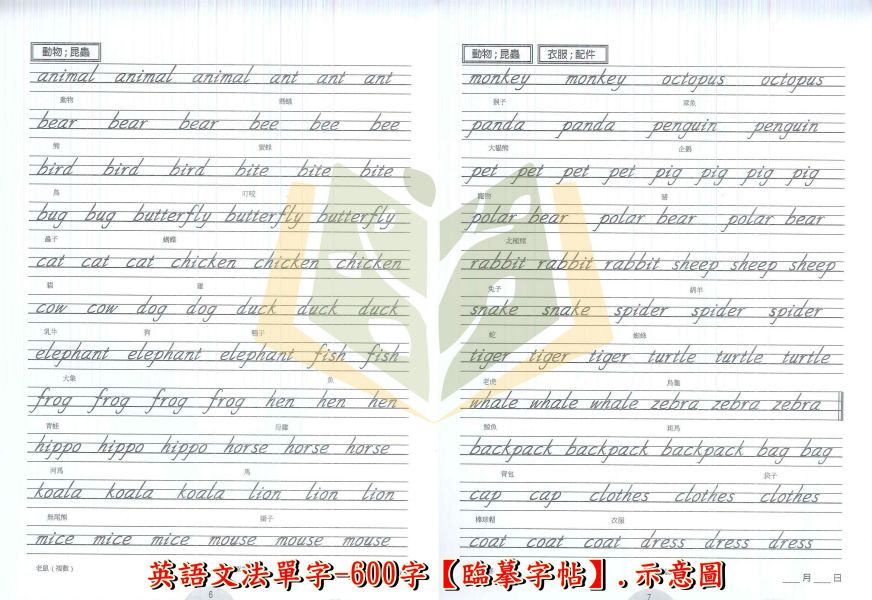 動物；昆蟲
animal animal animal ant ant ant
動物 螞蟻
bear bear bear bee bee bee
熊 蜜蜂
bird bird bird bite bite bite
鳥 叮咬
bug bug butterfly butterfly butterfly
蟲子 蝴蝶
cat cat cat chicken chicken chicken
貓 雞
cow cow dog dog duck duck duck
乳牛 狗 鴨子
elephant elephant elephant fish fish
大象 魚
frog frog frog frog hen hen hen
青蛙 母雞
hippo hippo hippo horse horse horse
河馬 馬
koala koala koala lion lion lion
無尾熊 獅子
mice mice mice mouse mouse mouse
老鼠（複數）
6
動物；昆蟲 衣服；配件
monkey monkey octopus octopus
猴子 章魚
panda panda penguin penguin
大貓熊 企鵝
pet pet pet pet pig pig pig pig
寵物 豬
polar bear polar bear polar bear
北極熊
rabbit rabbit rabbit sheep sheep sheep
兔子 綿羊
snake snake spider spider spider
蛇 蜘蛛
tiger tiger tiger turtle turtle turtle
老虎 烏龜
whale whale whale zebra zebra zebra
鯨魚 斑馬
backpack backpack backpack bag bag
背包 袋子
cap cap clothes clothes clothes
棒球帽 衣服
coat coat coat dress dress dress
月 日
7
英語文法單字-600字【臨摹字帖】.示意圖